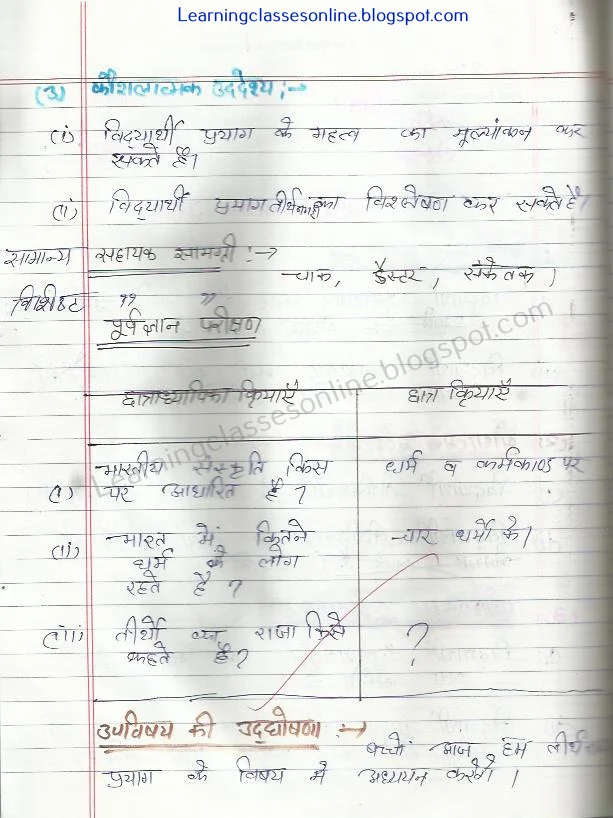 Learningclassesonline.blogspot.com
(3) कौशलात्मक उद्देश्य :→
(i) विद्यार्थी प्रयाग के महत्व का मूल्यांकन कर
सकते हैं।
(ii) विद्यार्थी प्रयाग का विश्लेषण कर सकते हैं।
सामान्य सहायक सामग्री :→
चाक, डैस्टर, संकेतक।
विशिष्ट " "
पूर्वज्ञान परीक्षण
छात्राध्यापिका क्रियाएँ छात्र क्रियाएँ
भारतीय संस्कृति किस धर्म व कर्मकाण्ड पर
(i) पर आधारित है?
(ii) भारत में कितने चार धर्मो के।
धर्म के लोग
रहते है?
(iii) तीर्थो का राजा किसे ?
कहते है?
उपविषय की उद्घोषणा :→
बच्चों आज हम
प्रयाग के विषय मे अध्ययन करेंगे।
Learningclassesonline.blogspot.com